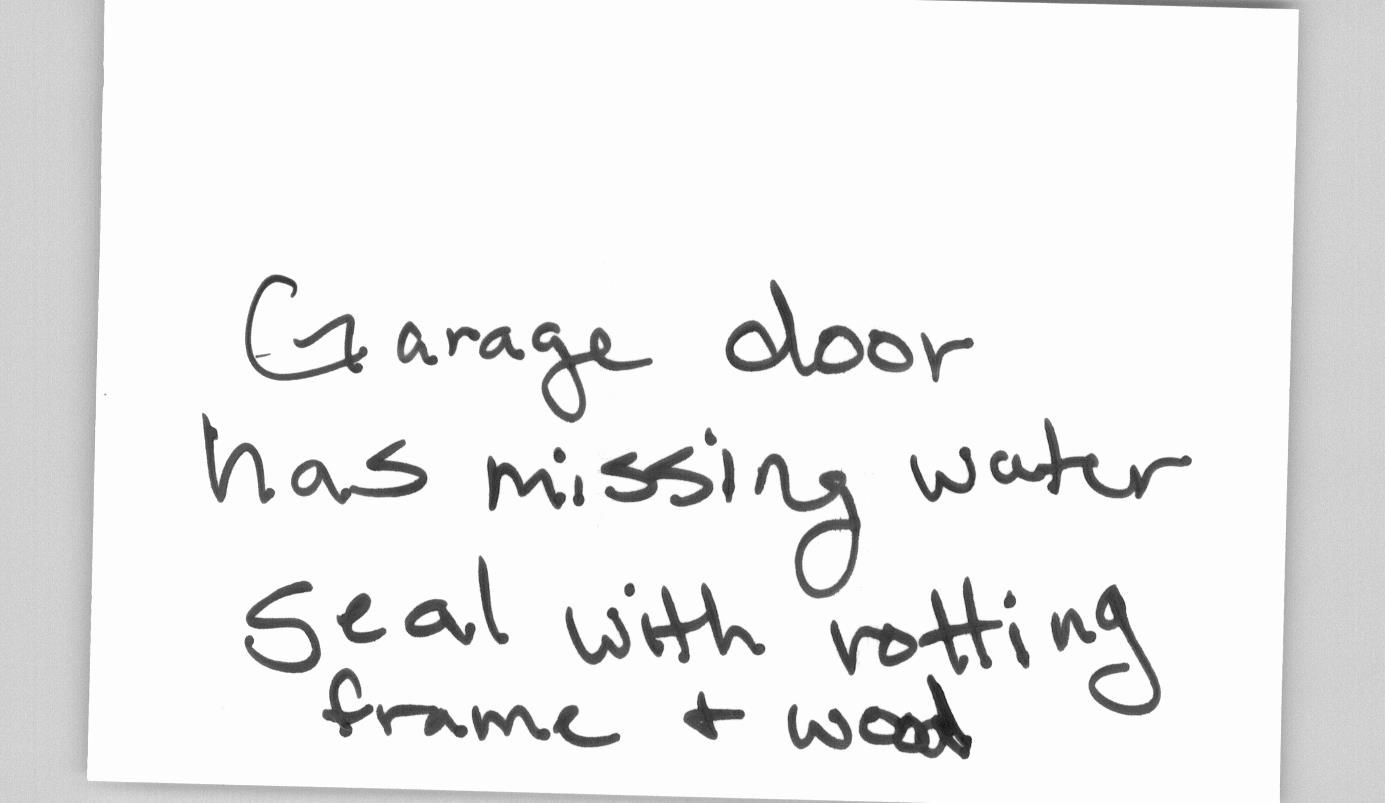 Garage door
has missing water
seal with rotting
frame + wood